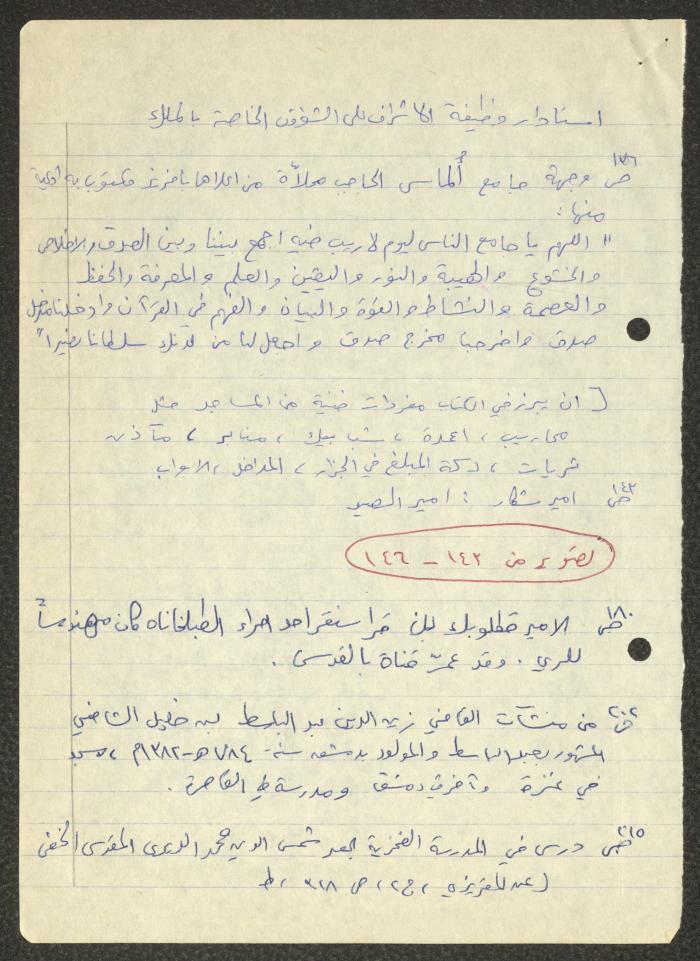 استادار وظيفة الاشراف على الشؤون الخاصة بالملك
ص ١٣٦ وجهة جامع أُلماس الحاجب محلاّة من اعلاها بافريز مكتوب به ادعية
منها:
" اللهم يا جامع الناس ليوم لا ريب فيه اجمع بيننا وبين الصدق والاخلاص
والخشوع والهيبة والنور واليقين والعلم والمعرفة والحفظ
والعصمة والنشاط والقوة والبيان والفهم في القرآن وادخلنا مدخل
صدق واخرجنا مخرج صدق واجعل لنا من لدنك سلطانا نصيرا"
[ ان يبرز في الكتاب مفردات فنية من المساجد مثل
محاريب ، اعمدة ، شبابيك ، منابر ، مآذن
ثريات ، دكة المبلغ في الجزار ، المداخل ، الابواب
ص ١٤٢ امير شكار : امير الصيد
تصور من ١٤٢ - ١٤٦
ص ١٨٠ الامير قطلوبك بن قراسنقر احد امراء الطبلخاناه كان مهندساً
للري . وقد عمّر قناة بالقدس .
ص ٢٠٢ من منشآت القاضي زين الدين عبد الباسط بن خليل الشافعي
المشهور بعبد الباسط والمولود بدمشق سنة ٧٨٤ هـ - ١٣٨٢م ، مسجد
في غزة وآخر في دمشق ومدرسة في القاهرة .
ص ٢١٥ درس في المدرسة الفخرية بعد شمس الدين محمد الديري المقدسي الحنفي
( عن المقريزي ، ج ٢ ، ص ٣٢٨ ، ط